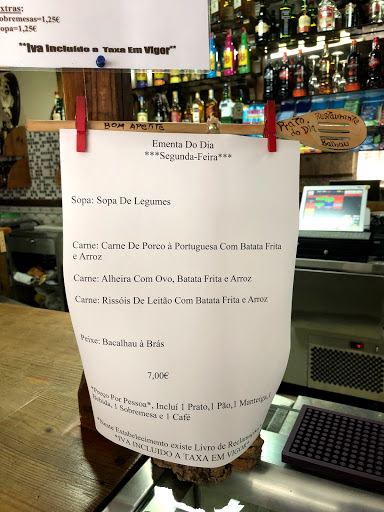 Extras:
Sobremesas=1,25€
Sopa=1,25€
**Iva Incluído a Taxa Em Vigor**
BOM APETITE
Prato do Dia
Restaurante
Ementa Do Dia
***Segunda-Feira***
Sopa: Sopa De Legumes
Carne: Carne De Porco à Portuguesa Com Batata Frita
e Arroz
Carne: Alheira Com Ovo, Batata Frita e Arroz
Carne: Rissóis De Leitão Com Batata Frita e Arroz
Peixe: Bacalhau à Brás
7,00€
*Preço Por Pessoa*, Incluí 1 Prato,1 Pão,1 Manteiga,
Bebida, 1 Sobremesa e 1 Café
*Neste Estabelecimento existe Livro de Reclamações
*IVA INCLUIDO A TAXA EM VIGOR*